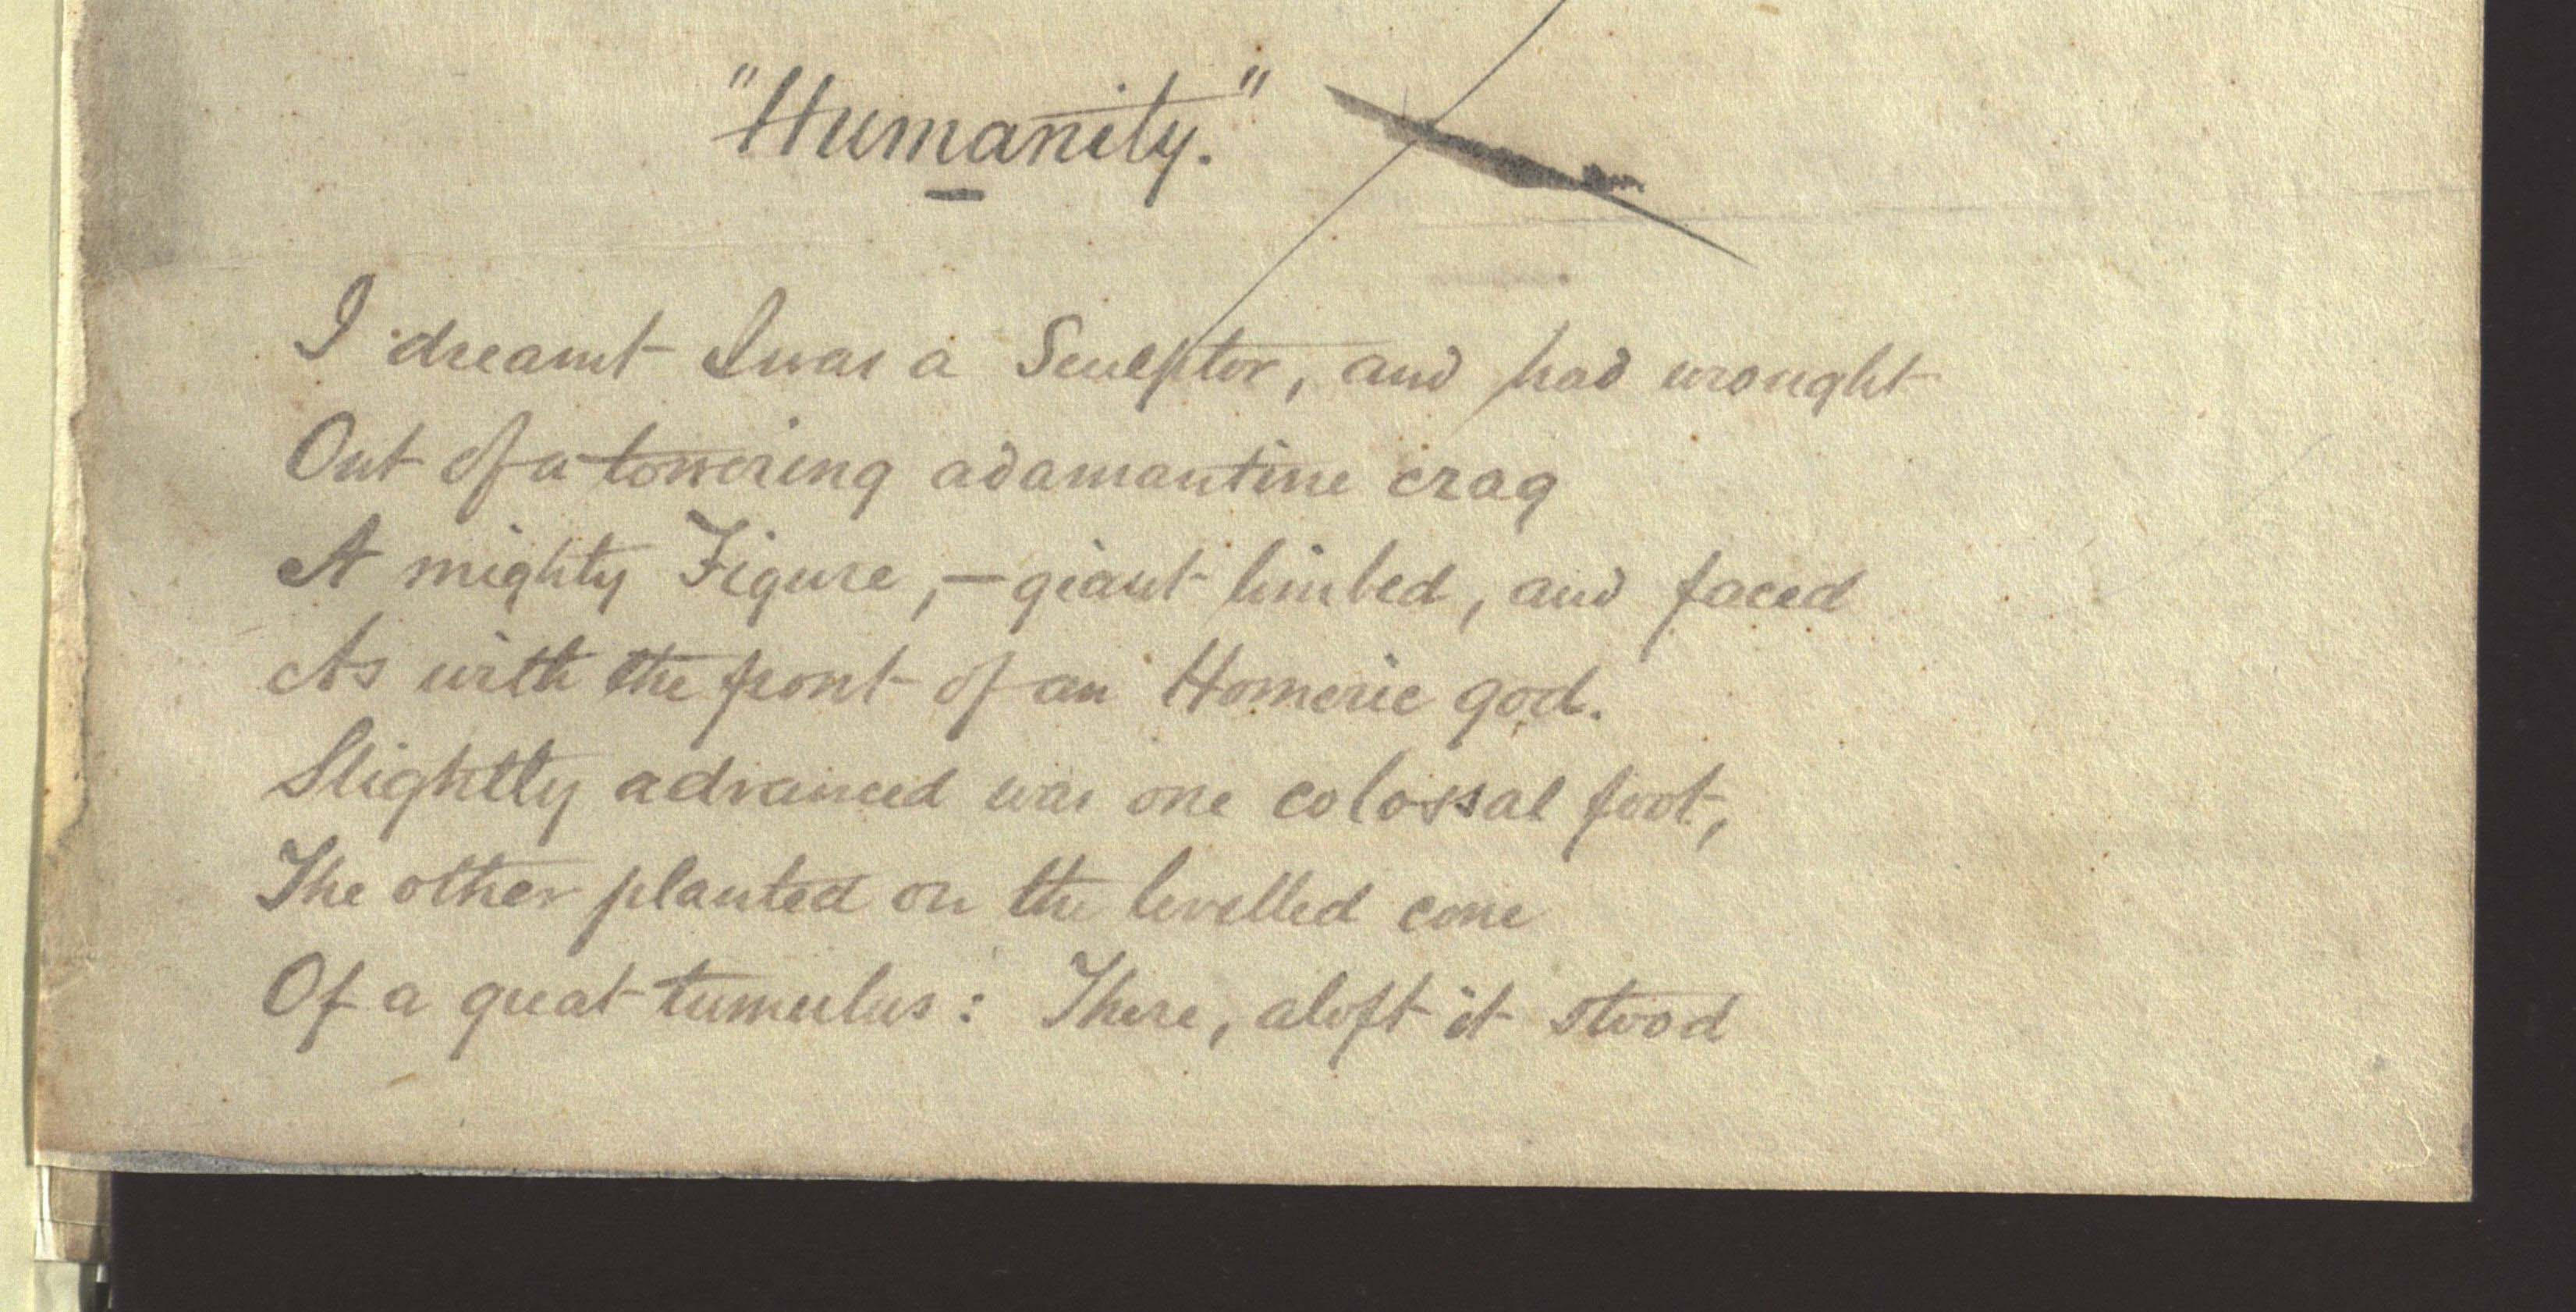 "Humanity."
I dreamt I was a Sculptor, and had wrought
Out of a towering adamantine crag
A mighty Figure,—giant limbed, and faced
As with the front of an Homeric god.
Slightly advanced was one colossal foot,
The other planted on the levelled cone
Of a great tumulus: There, aloft it stood